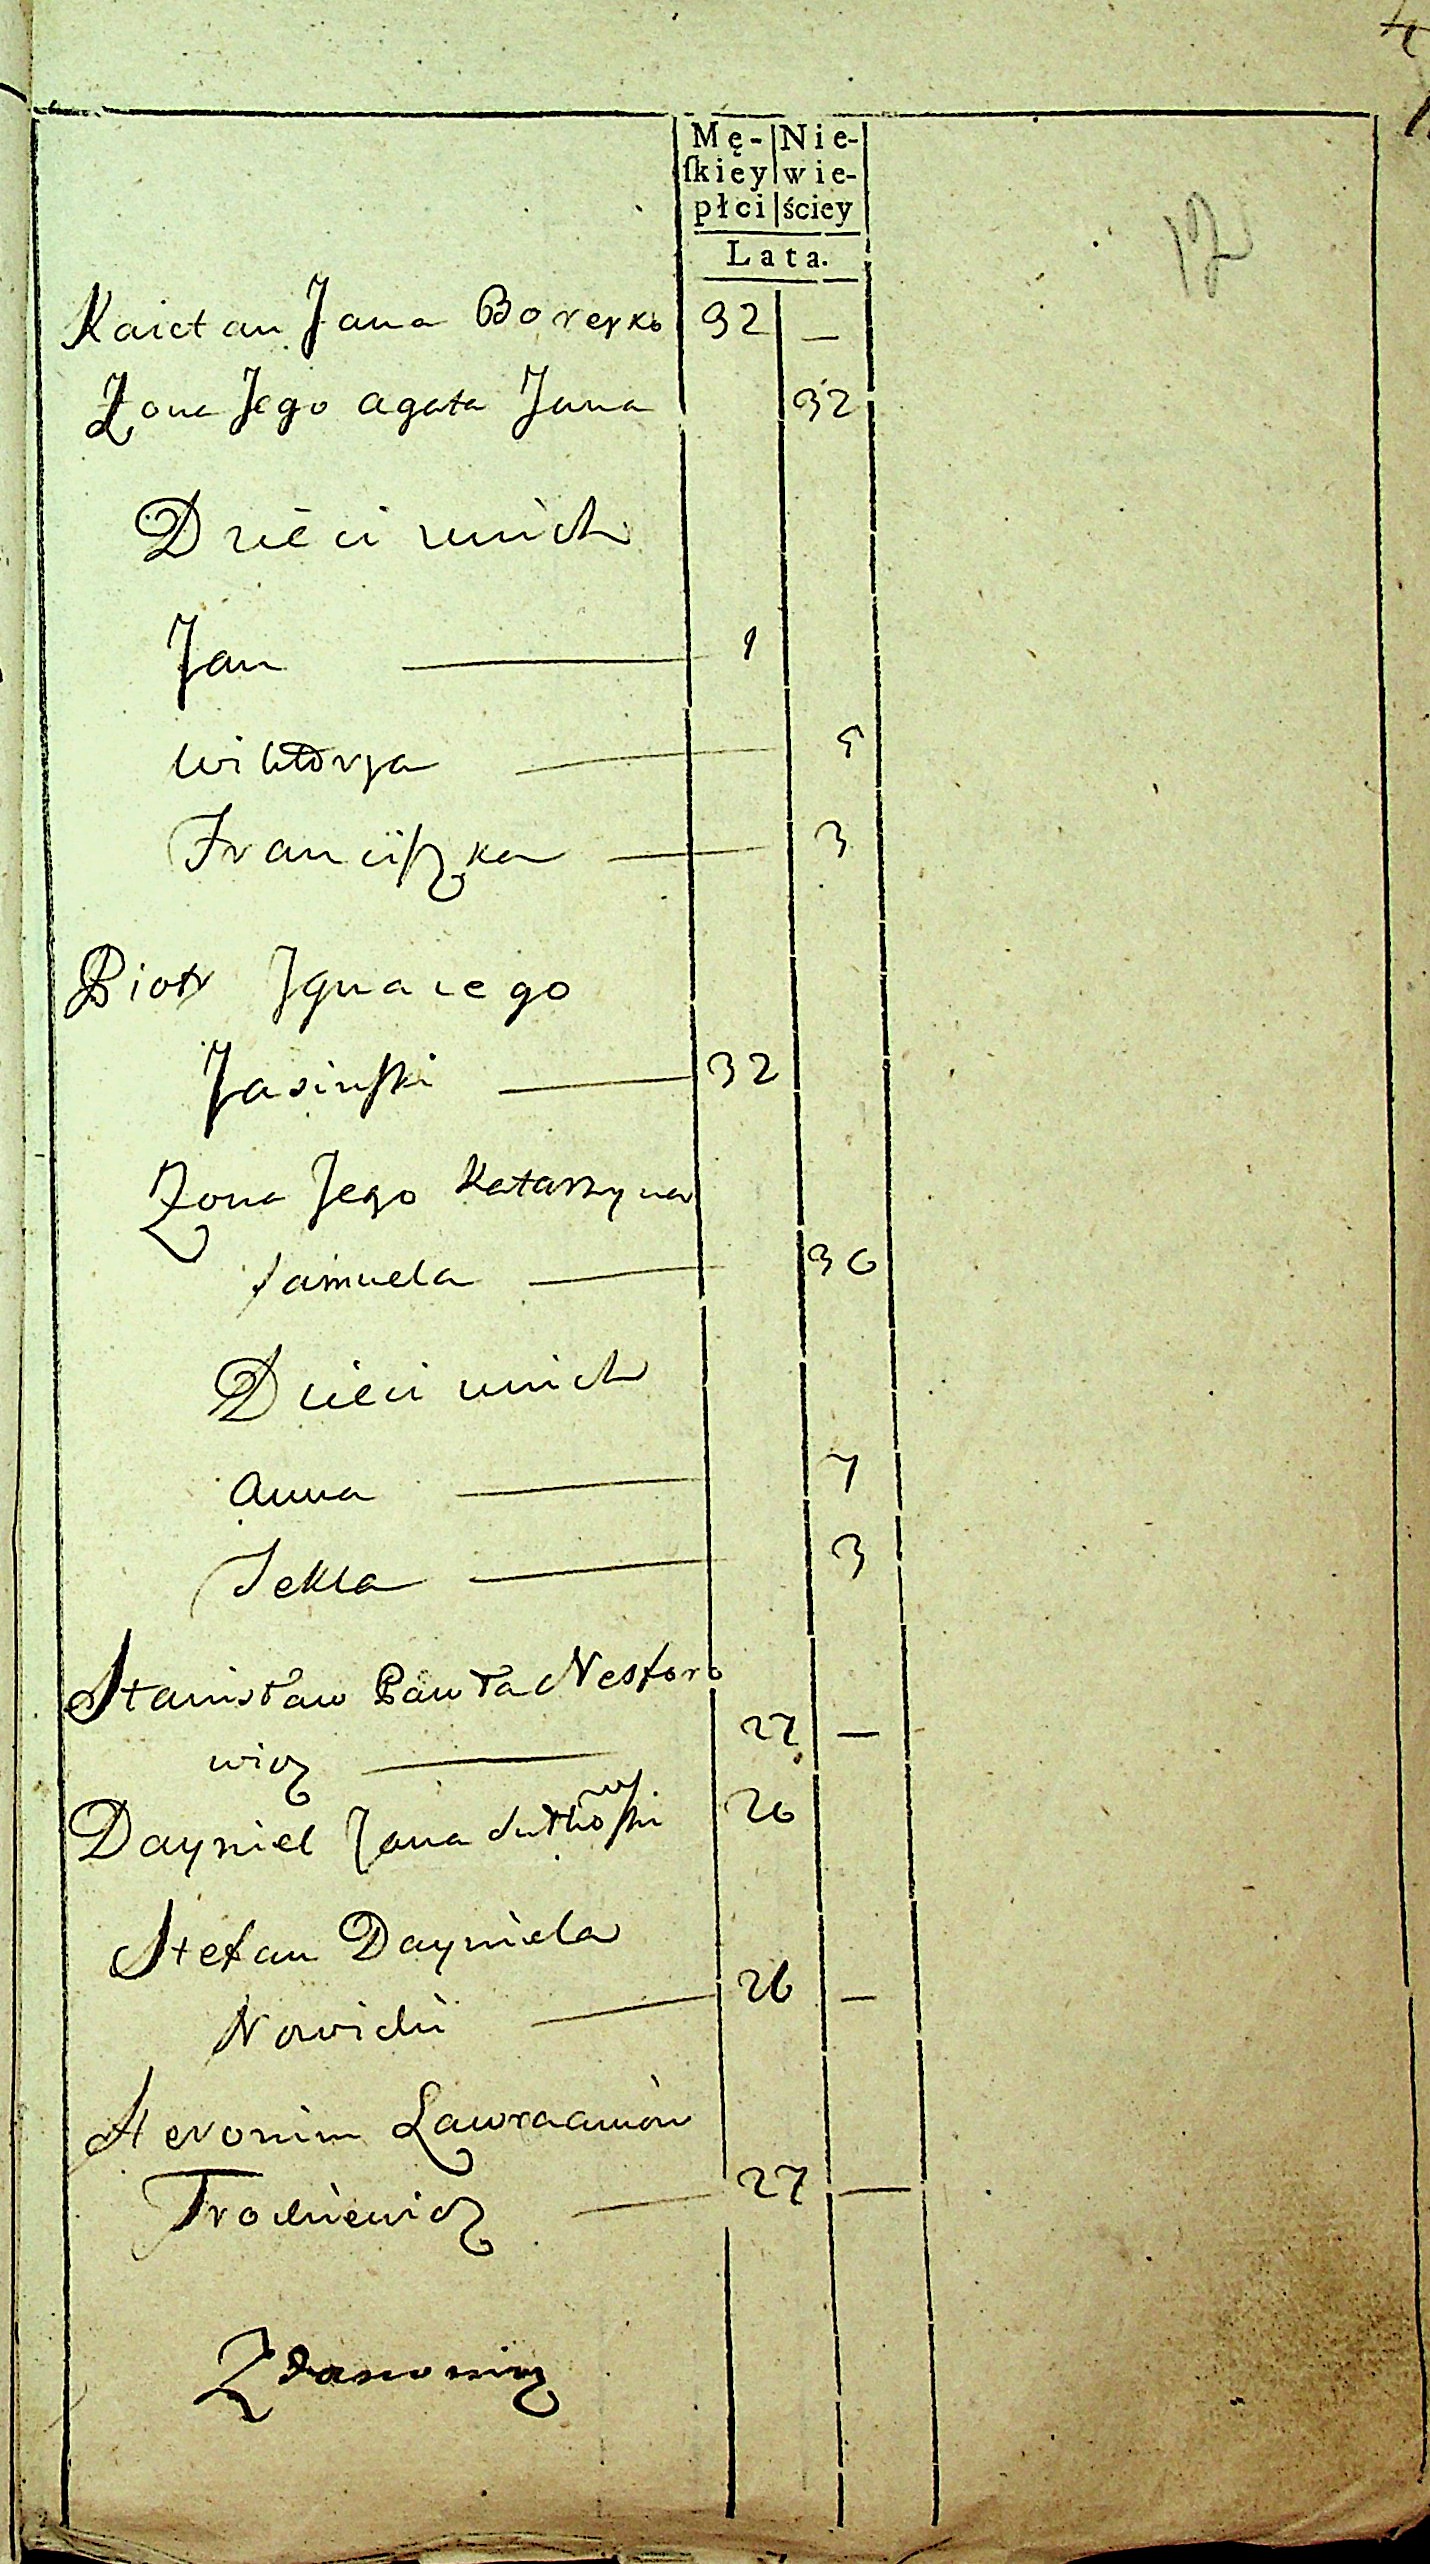 Mę- Nie-
ſkiey wie-
płci ściey
Lata.
Kaietan Jana Boreyko 32 —
Zona Jego Agata Jana 32
Dzieci u nich
Jan — 1
Wiktorya — 5
Franciſzka — 3
Piotr Ignacego
Jasinſki — 32
Zona Jego Katarzyna
Samuela — 36
Dzieci u nich
Anna — 7
Tekla — 3
Stanisław Pawła Nestoro
wicz — 27 —
Dayniel Jana Sutkowſki 26
Stefan Dayniela
Nowicki — 26 —
Heronim
Trockiewicz — 27 —
Zdanowicz